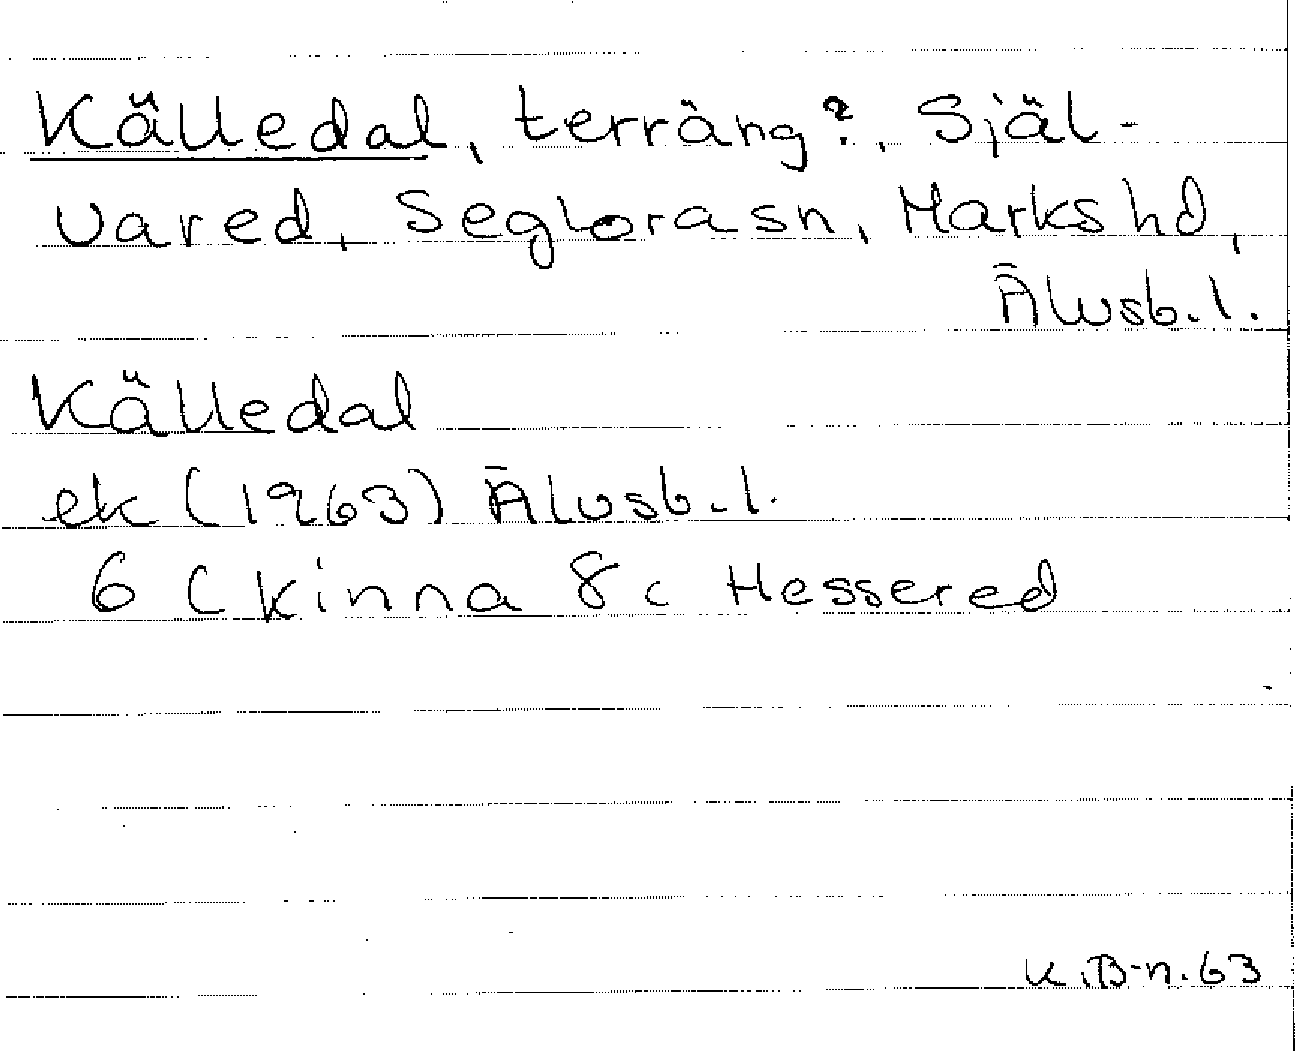 Källedal, terräng?, Själ-
vared, Seglora sn, Marks hd,
Älvsb. l.
Källedal
ek (1963) Älvsb. l.
6 C Kinna 8 c Hessered
K.B-n. 63